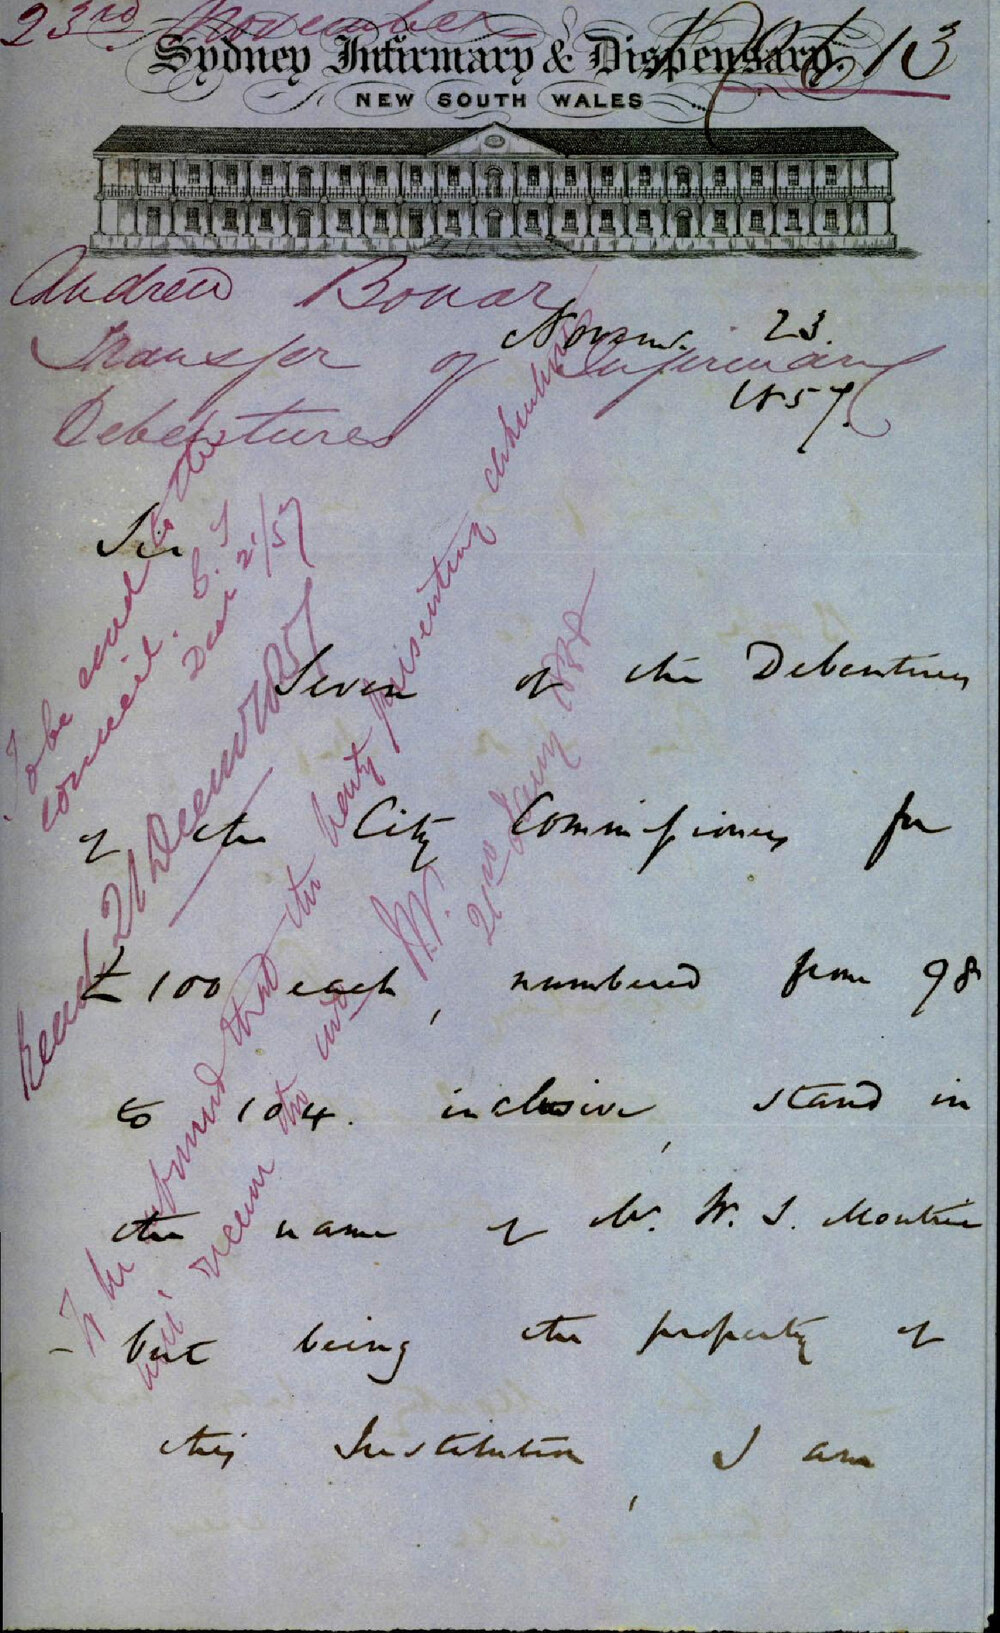 23rd November
No 613
Sydney Infirmary & Dispensary.
NEW SOUTH WALES
Andrew Bonar
Transfer of Infirmary
Debentures
Novem. 23.
1857.
Sir
Seven of the Debentures
of the City Commissioners for
£100 each, numbered from 98
to 104. inclusive, stand in
the name of Mr. W. S. Moutrie
- but being the property of
this Institution, I am
To be read to the
council.
Decr 21/57
Read 21 Decemr 1857
To be informed that the party presenting debentures
will receive the